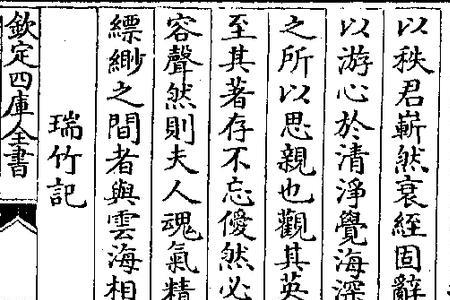 以秩君嶄然衰絰固辭
以游心於清淨覺海深
之所以思親也觀其英
至其著存不忘優然必
容聲然則夫人魂氣精
縹緲之間者與雲海相
瑞竹記
欽定四庫全書